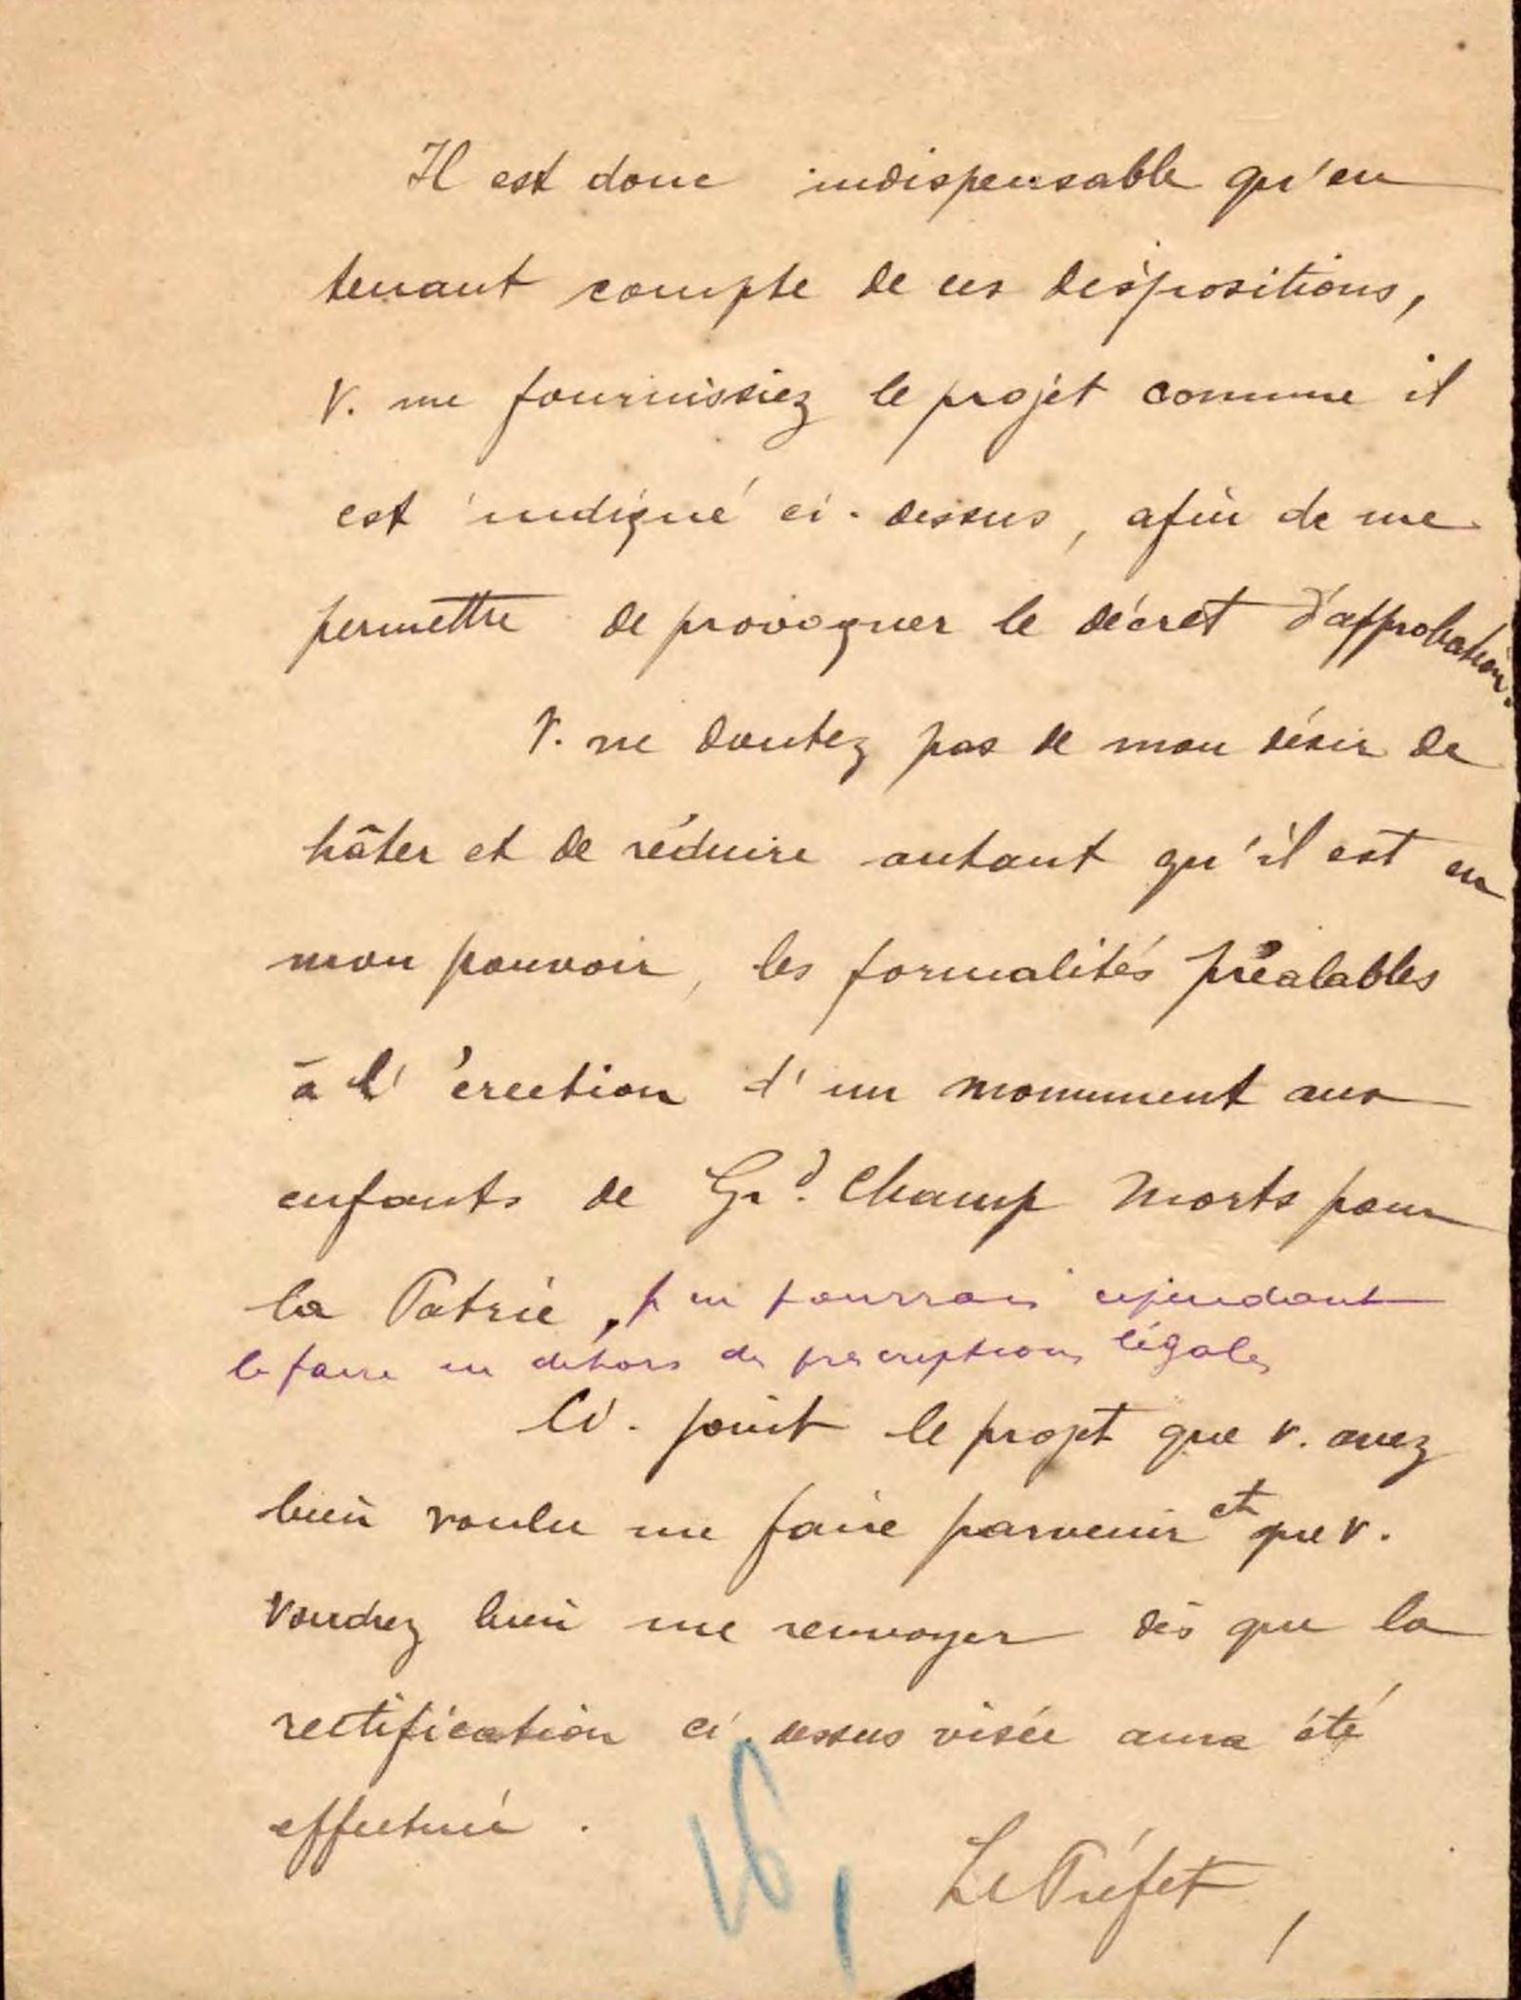 Il est donc indispensable qu'en
tenant compte de ces dispositions,
V. me fournissiez le projet comme il
est indiqué ci-dessus, afin de me
permettre de provoquer le décret d'approbation.
V. ne doutez pas de mon désir de
hâter et de réduire autant qu'il est en
mon pouvoir, les formalités préalables
à l'érection d'un monument aux
enfants de Gd. Champ Morts pour
la Patrie, pourrais cependant
le faire en dehors des prescriptions légales
Ci-joint le projet que v. avez
bien voulu me faire parvenir et que v.
voudrez bien me renvoyer dès que la
rectification ci-dessus visée aura été
effectuée.
Le Préfet,